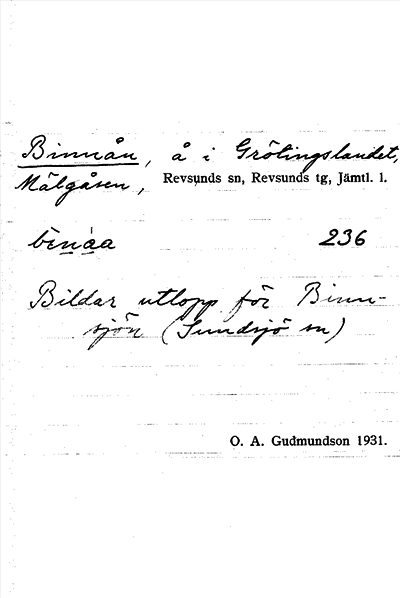 Binnån, å i Grötingslandet,
Mälgåsen, Revsunds sn, Revsunds tg, Jämtl. l.
bènáa 236
Bildar utlopp för Binn-
sjön (Sundsjö sn)
O. A. Gudmundson 1931.